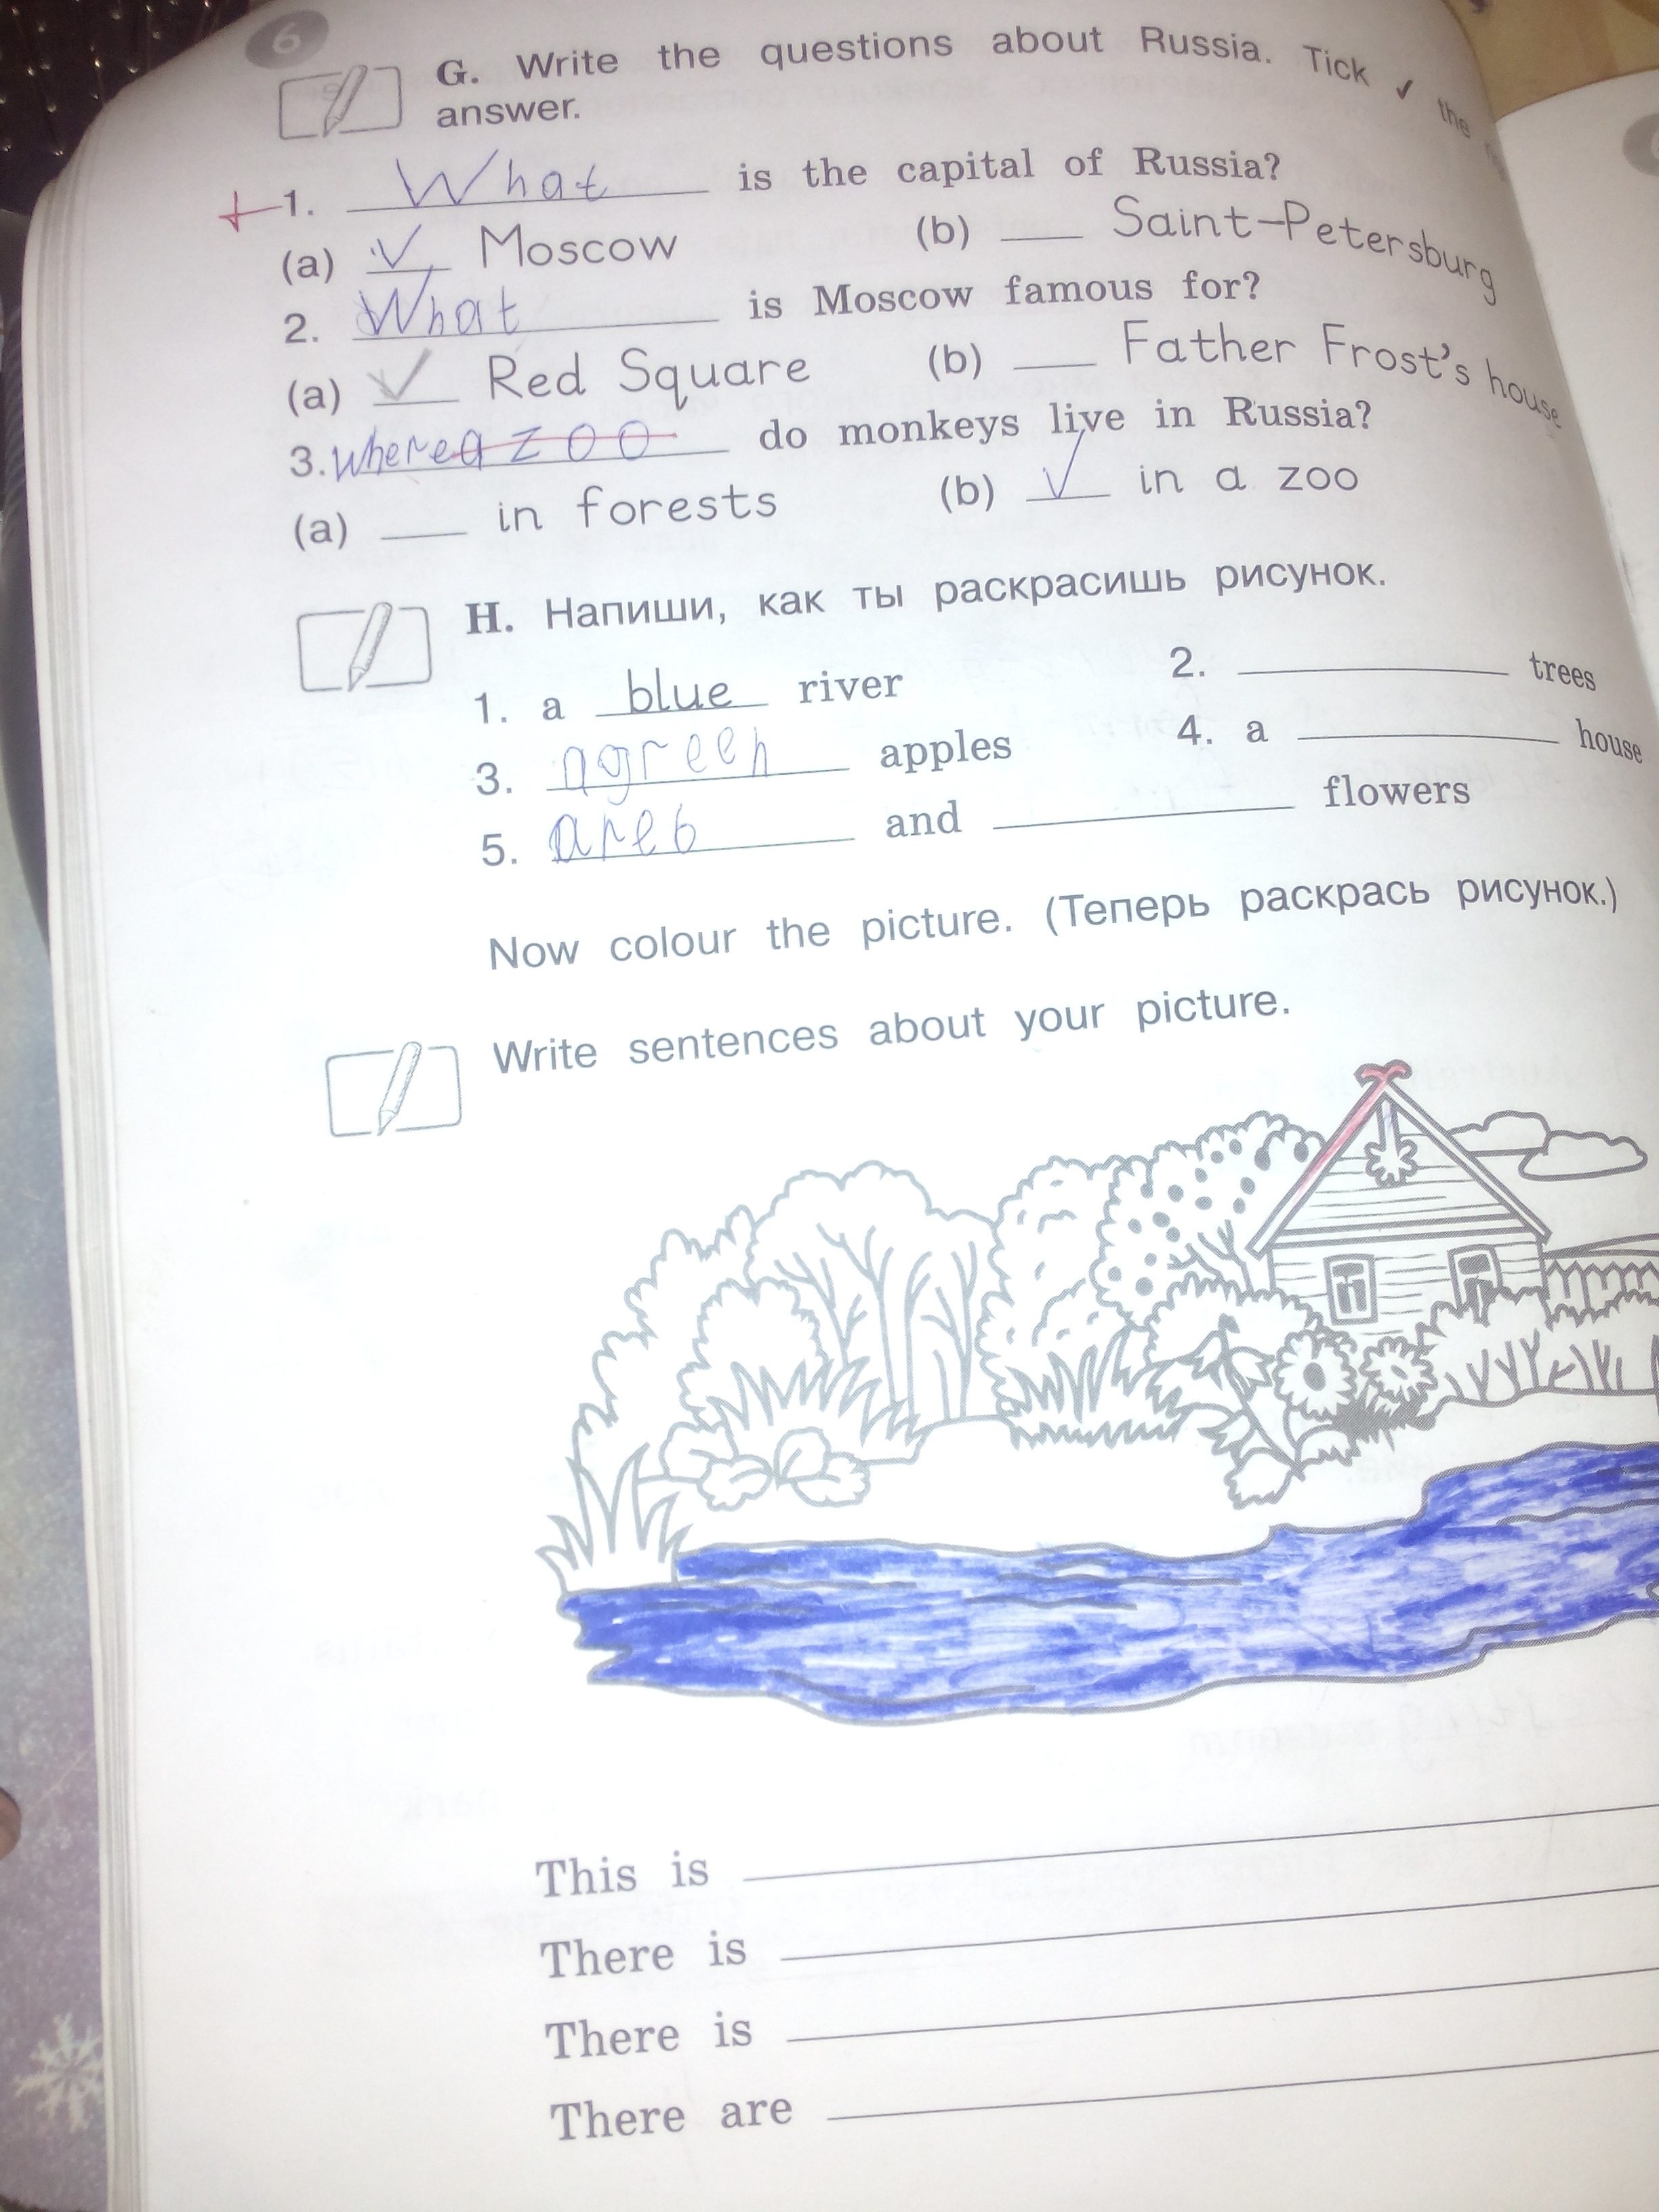 6
G. Write the questions about Russia. Tick ✓ the
answer.
1. What is the capital of Russia?
(a) ✓ Moscow (b) ___ Saint-Petersburg
2. What is Moscow famous for?
(a) ✓ Red Square (b) ___ Father Frost's house
3. where a zoo do monkeys live in Russia?
(a) ___ in forests (b) ✓ in a zoo
H. Напиши, как ты раскрасишь рисунок.
1. a blue river 2. ___ trees
3. agreen apples 4. a ___ house
5. and ___ flowers
Now colour the picture. (Теперь раскрась рисунок.)
Write sentences about your picture.
This is
There is
There is
There are